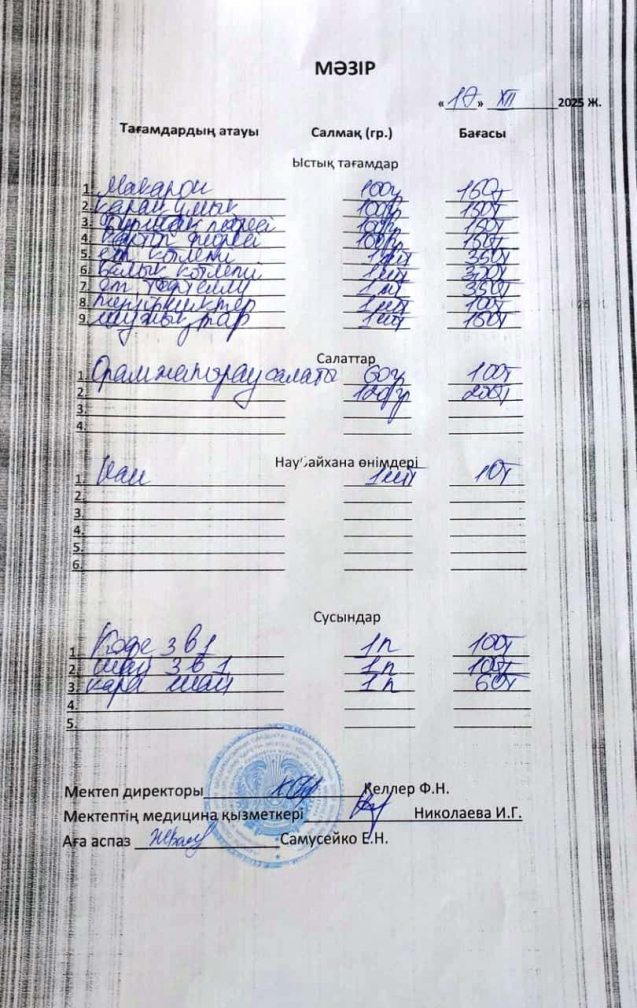 МӘЗІР
« 10 » XII 2025 Ж.
Тағамдардың атауы Салмақ (гр.) Бағасы
Ыстық тағамдар
1. Макарон 100гр 150т
2. 100гр 150т
3. 100гр 150т
4. 100гр 150т
5. ет котлеті 1шт 350т
6. балық котлеті 1шт 300т
7. ет 1шт 350т
8. 1шт 100т
9. шұжықтар 1шт 150т
Салаттар
1. салаты 60гр 100т
2. 120гр 200т
3.
4.
Наубайхана өнімдері
1. Нан 1шт 10т
2.
3.
4.
5.
6.
Сусындар
1. Кофе 3в1 1п 100т
2. шай 3в1 1п 100т
3. кара шай 1п 60т
4.
5.
Мектеп директоры Келлер Ф.Н.
Мектептің медицина қызметкері Николаева И.Г.
Аға аспаз Самусейко Е.Н.